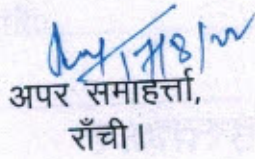 17/8/22
अपर समाहर्त्ता,
राँची।